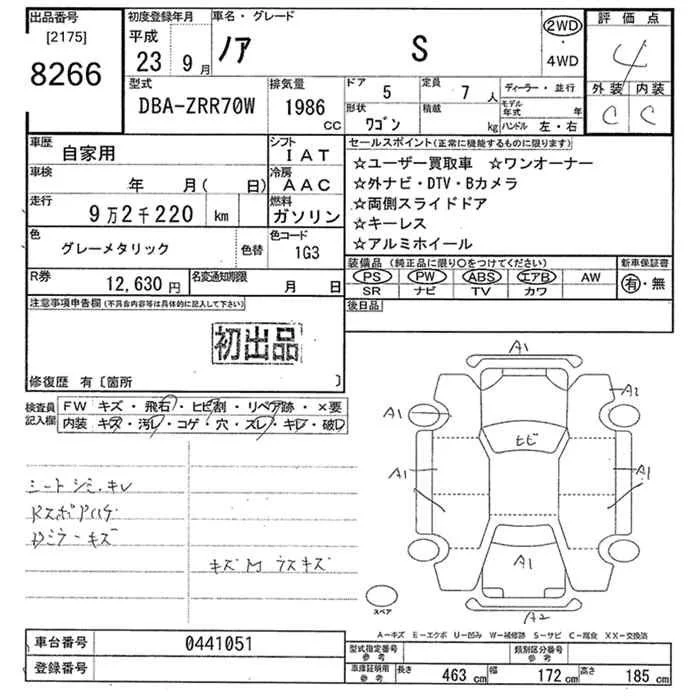 出品番号
[2175]
8266
初度登録年月
平成
23 9 月
車名・グレード
ノア S
2WD
・
4WD
評価点
4
外装 内装
C C
型式
DBA-ZRR70W
排気量
1986
CC
ドア
5
定員
7 人
形状
ワゴン
積載
kg
ディーラー・並行
モデル年式 年
ハンドル 左・右
車歴
自家用
シフト
IAT
車検
年 月( 日)
冷房
AAC
走行
9万2千220 km
燃料
ガソリン
色
グレーメタリック
色替
色コード
1G3
R券
12,630 円
名変通知期限
月 日
セールスポイント(正常に機能するものに限ります)
☆ユーザー買取車 ☆ワンオーナー
☆外ナビ・DTV・Bカメラ
☆両側スライドドア
☆キーレス
☆アルミホイール
装備品 (純正品に限り○をつけてください)
PS PW ABS エアB AW
SR ナビ TV カワ
新車保証書
有・無
後日品
注意事項申告欄(不具合内容等は具体的に記入して下さい)
初出品
修復歴 有〔箇所 〕
検査員
記入欄
FW キズ・飛石・ヒビ割・リペア跡・×要
内装 キズ・汚レ・コゲ・穴・スレ・キレ・破レ
シートシミ・キレ
Dミラーキズ
A1
A2
A1
ヒビ
A1
A1
A1
A2
スペア
A-キズ E-エクボ U-凹み W-補修跡 S-サビ C-腐食 XX-交換済
車台番号
0441051
登録番号
型式指定番号
参考
類別区分番号
参考
車庫証明用
参考
長さ 463 cm 幅 172 cm 高さ 185 cm